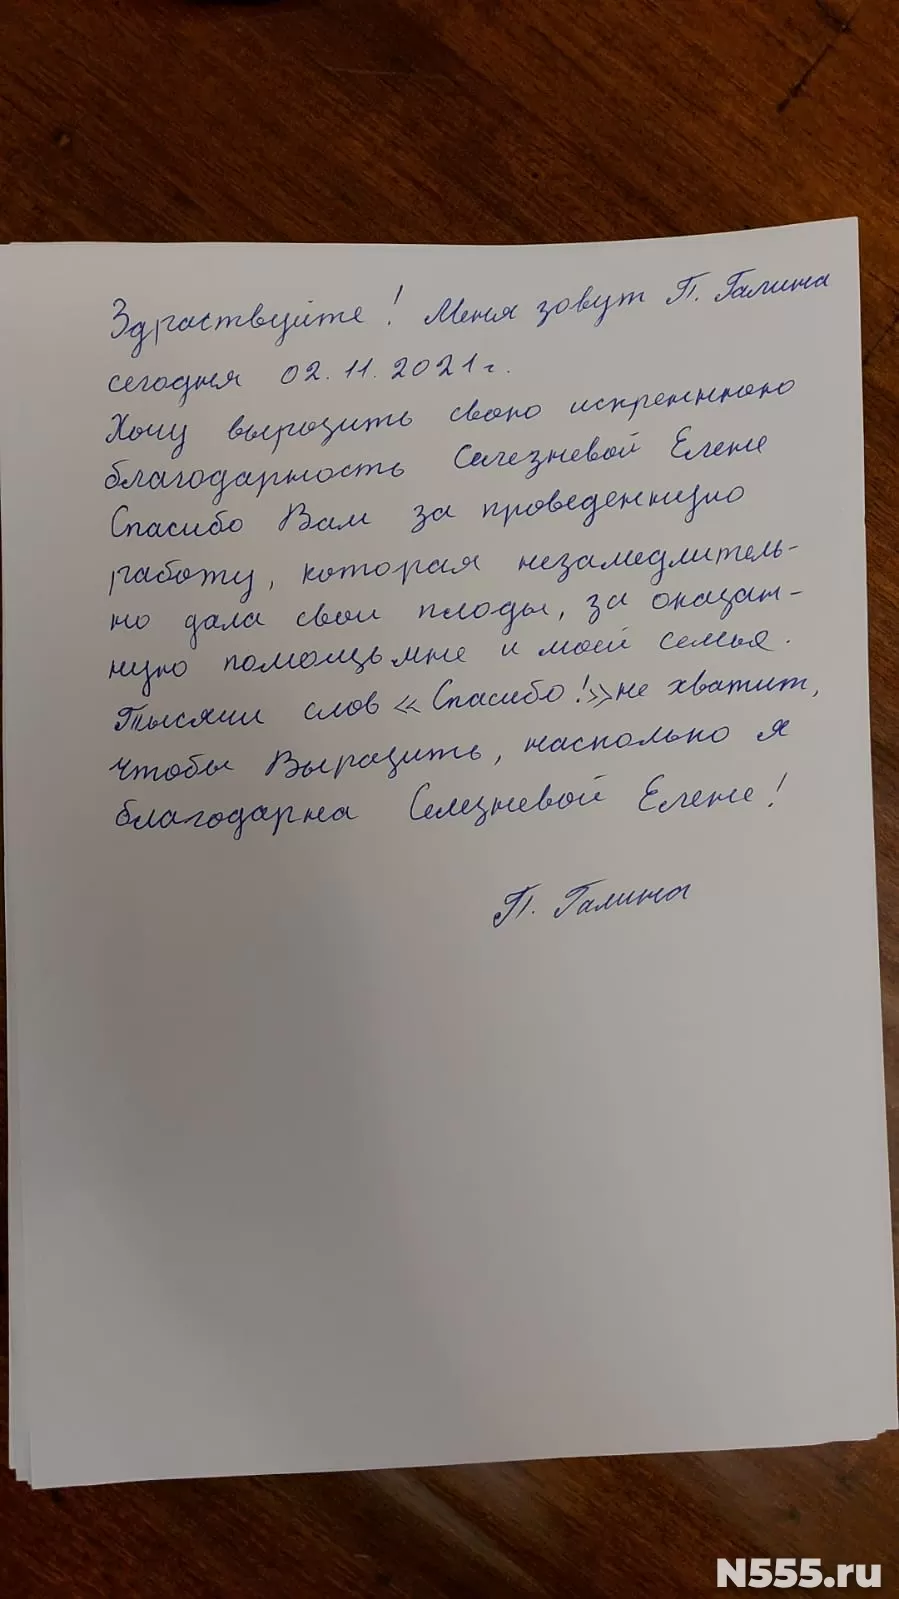 Здраствуйте! Меня зовут П. Галина
сегодня 02.11.2021г.
Хочу выразить свою искреннюю
благодарность Селезневой Елене
Спасибо Вам за проведенную
работу, которая незамедлитель-
но дала свои плоды, за оказан-
ную помощь мне и моей семье.
Тысячи слов «Спасибо!» не хватит,
чтобы Выразить, насколько я
благодарна Селезневой Елене!
П. Галина
N555.ru